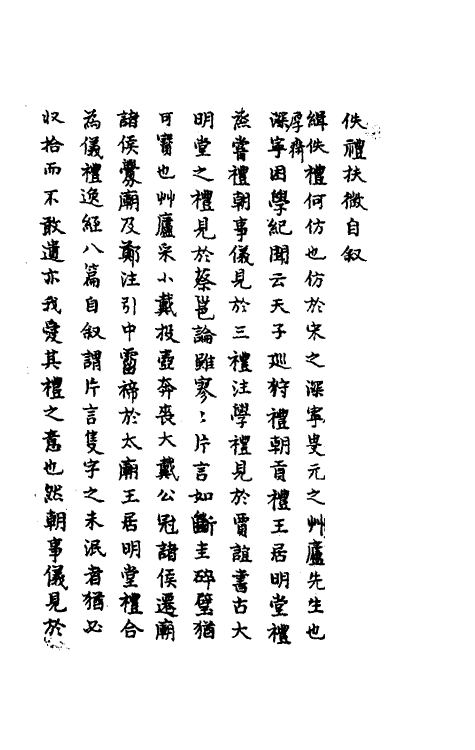 佚禮扶微自叙
緝佚禮何仿也仿於宋之深寧叟元之艸廬先生也
厚齋
深寧困學紀聞云天子巡狩禮朝貢禮王居明堂禮
烝嘗禮朝事儀見於三禮注學禮見於賈誼書古大
明堂之禮見於蔡邕論雖寥〻片言如斷圭碎璧猶
可寳也艸廬采小戴投壺奔喪大戴公冠諸侯遷廟
諸侯釁廟及鄭注引中霤禘於太廟王居明堂禮合
為儀禮逸經八篇自叙謂片言隻字之未泯者猶必
収拾而不敢遺亦我愛其禮之意也然朝事儀見於